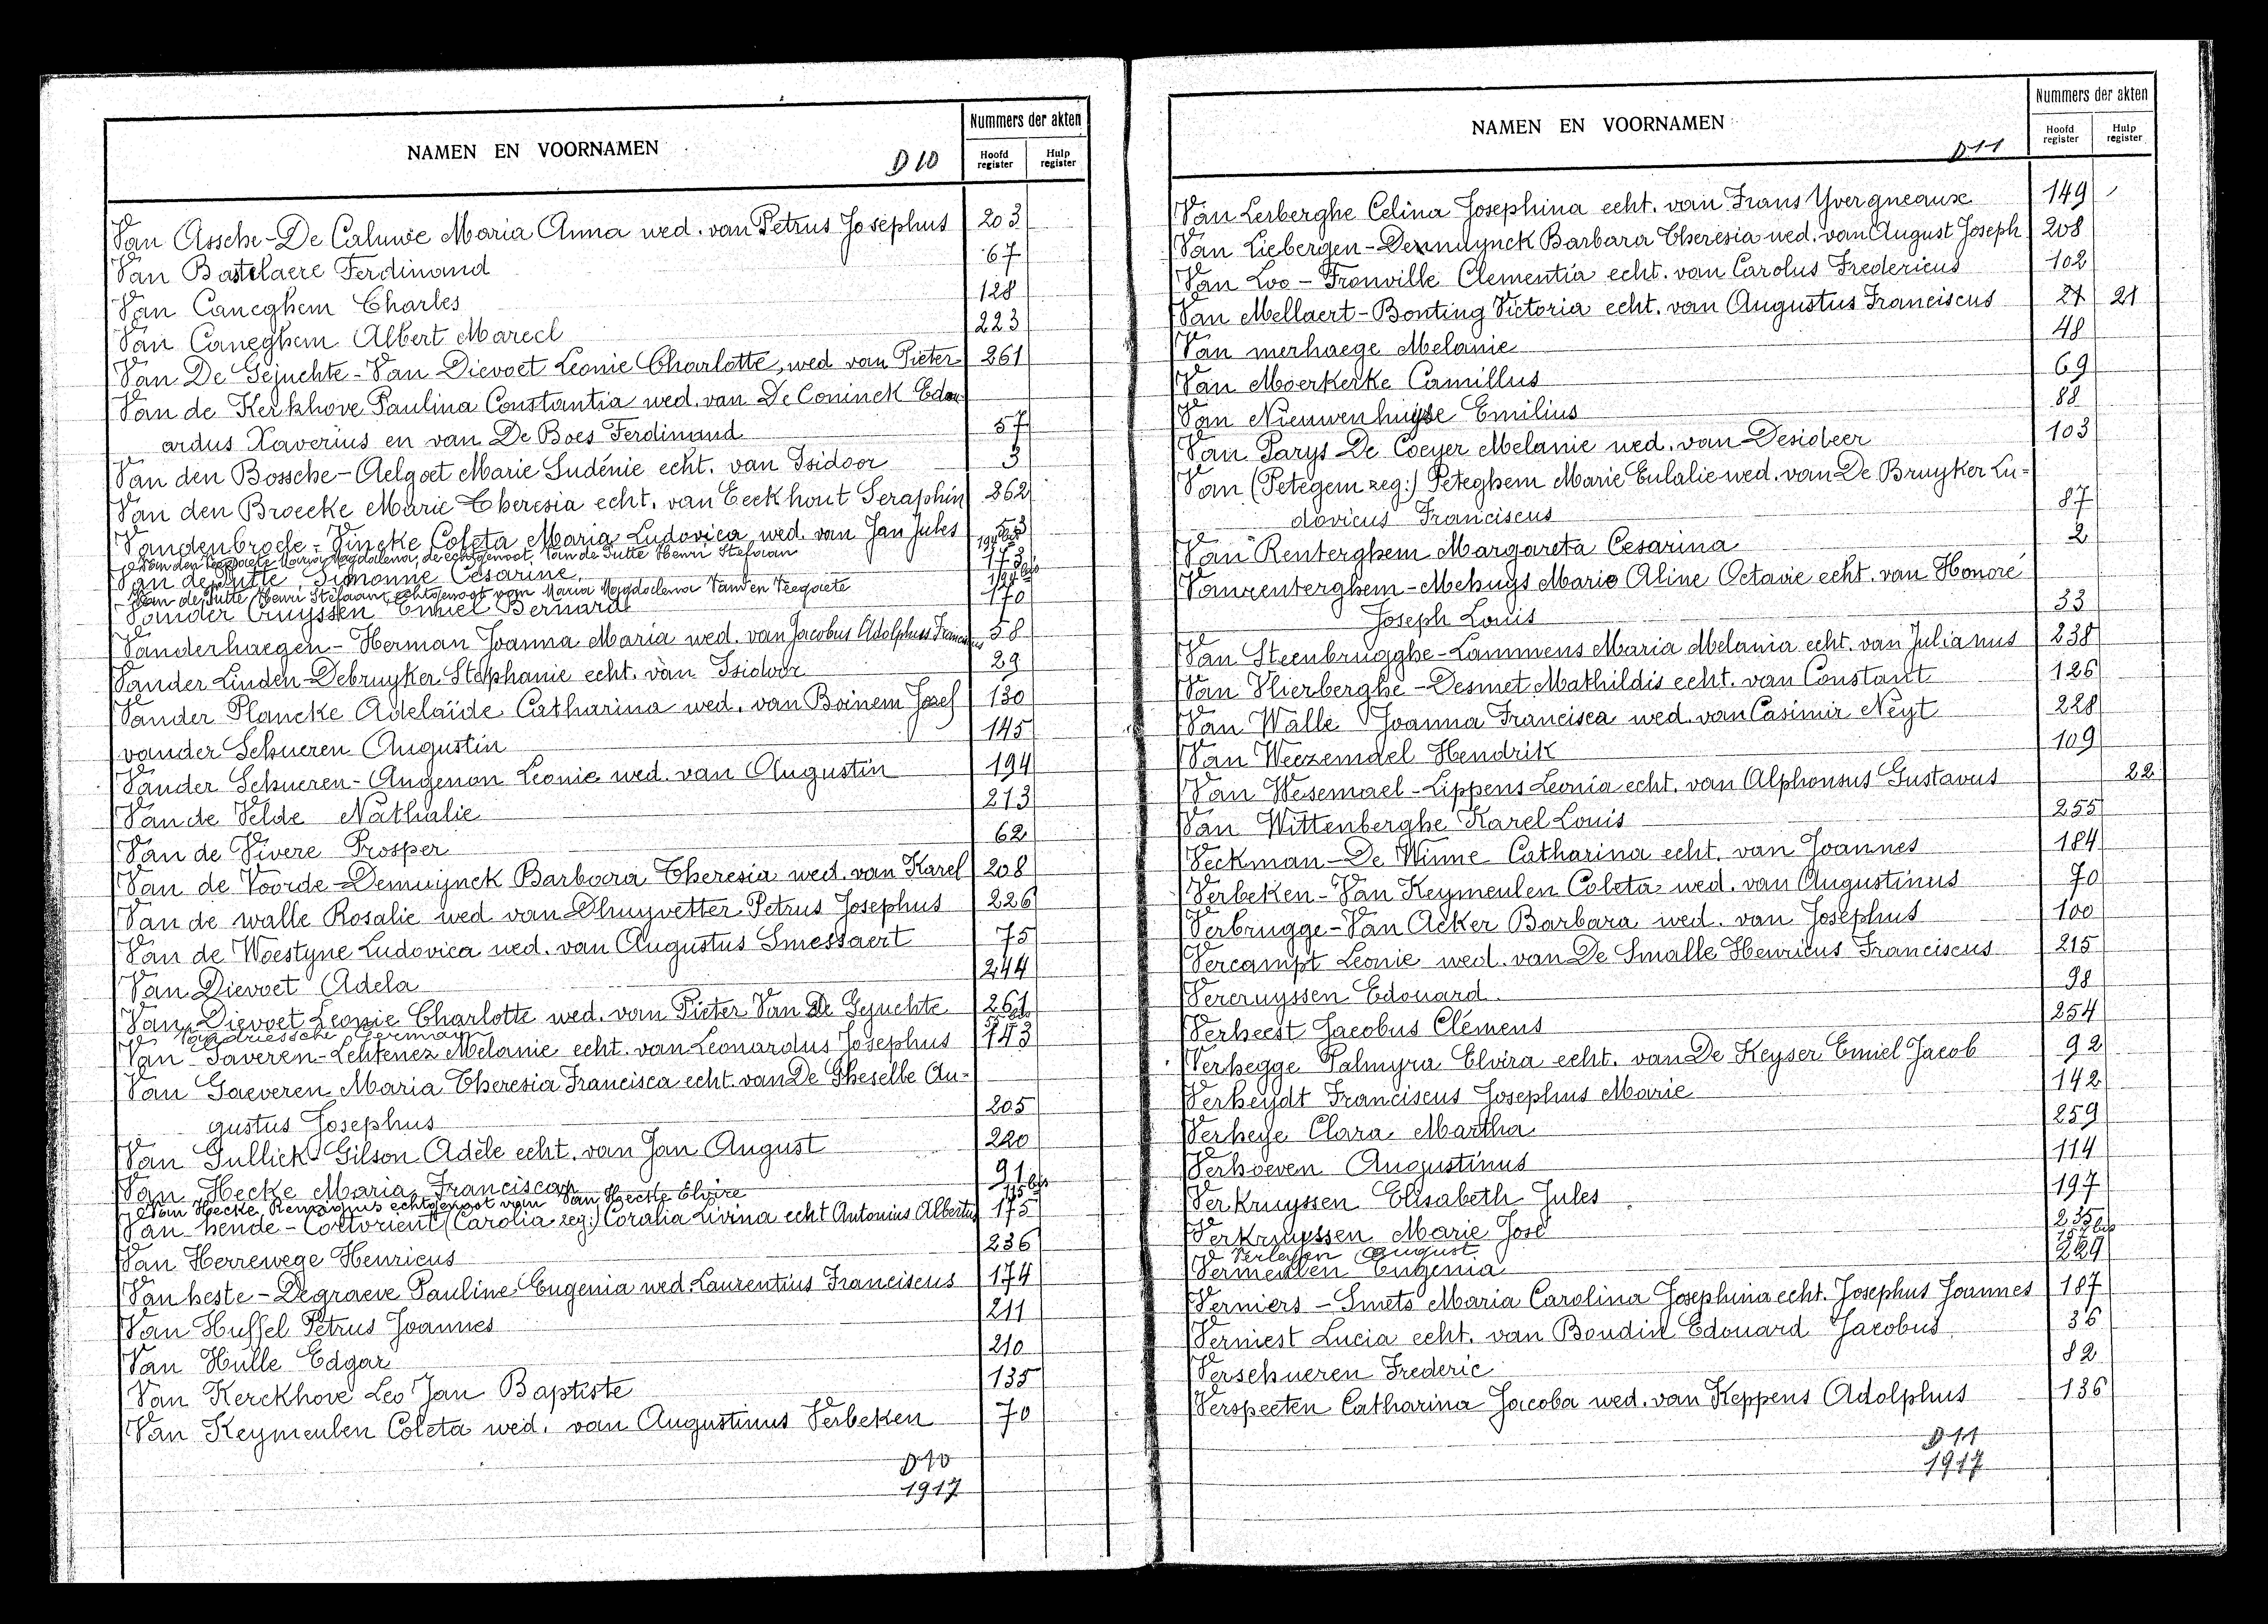 NAMEN EN VOORNAMEN
D10
Nummers der akten
Hoofd register
Hulp register
Van Assche-De Caluwe Maria Anna wed. van Petrus Josephus 203
Van Bastelaere Ferdinand 67
Van Caneghem Charles 128
Van Caneghem Albert Marecl 223
Van De Gejuchte-Van Dievoet Leonie Charlotte, wed van Pieter 261
Van de Kerkhove Paulina Constantia wed. van De Coninck Edou-
ardus Xaverius en van De Boes Ferdinand 57
Van den Bossche-Aelgoet Marie Ludénie echt. van Isidoor 3
Van den Broecke Marie Theresia echt. van Eeckhout Seraphin 262
Vandenbrode-Vincke Coleta Maria Ludovica wed. van Jan Jules 53
Van den Veegaete Maria Magdalena, de echtgenoot Van de Putte Henri Stefaan
Van de Putte Simonne Cesarine 173
Van de Putte Henri Stefaan echtgenoot van Maria Magdalena Van en Veegaete
Vander Cruyssen Emiel Bernard 170
Vanderhaegen-Herman Joanna Maria wed. van Jacobus Adolphus Franciscus 58
Vander Linden-Debruyker Stephanie echt. van Isidoor 29
Vander Plancke Adelaïde Catharina wed. van Boinem Jozef 130
vander Schueren Augustin 145
Vander Schueren-Angenon Leonie wed. van Augustin 194
Van de Velde Nathalie 213
Van de Vivere Prosper 62
Van de Voorde-Demuijnck Barbara Theresia wed. van Karel 208
Van de walle Rosalie wed van Dhuyvetter Petrus Josephus 226
Van de Woestyne Ludovica wed. van Augustus Smessaert 75
Van Dievoet Adela 244
Van Dievoet Leonie Charlotte wed. van Pieter Van De Gejuchte 261
Vandriessche German
Van Gaveren-Lehtenez Melanie echt. van Leonardus Josephus 143
Van Gaeveren Maria Theresia Francisca echt. van De Gheselle Au-
gustus Josephus 205
Van Gullick-Gilson Adèle echt. van Jan August 220
Van Hecke Maria Francisca 91
Van Hecke Remigius echtgenoot van Van Hecke Elvire 115 bis
Van hende-Cottorient (Carolia zeg:) Coralia Livina echt Antonius Albertus 175
Van Herrewege Henricus 236
Van heste-Degraeve Pauline Eugenia wed. Laurentius Franciscus 174
Van Huffel Petrus Joannes 211
Van Hulle Edgar 210
Van Kerckhove Leo Jan Baptiste 135
Van Keymeulen Coleta wed. van Augustinus Verbeken 70
D10
1917
NAMEN EN VOORNAMEN
D11
Nummers der akten
Hoofd register
Hulp register
Van Lerberghe Celina Josephina echt. van Frans Yvergneaux 149
Van Liebergen-Demuynck Barbara Theresia wed. van August Joseph 208
Van Loo-Fronville Clementia echt. van Carolus Fredericus 102
Van Mellaert-Bonting Victoria echt. van Augustus Franciscus 21 21
Van merhaege Melanie 48
Van Moerkerke Camillus 69
Van Nieuwenhuyse Emilius 88
Van Parys De Coeyer Melanie wed. van Desideer 103
Van (Petegem zeg:) Peteghem Marie Eulalie wed. van De Bruyker Lu-
dovicus Franciscus 87
Van Renterghem Margareta Cesarina 2
Vanrenterghem-Mehuys Marie Aline Octavie echt. van Honoré
Joseph Louis 33
Van Steenbrugghe-Lammens Maria Melania echt. van Julianus 238
Van Vlierberghe-Desmet Mathildis echt. van Constant 126
Van Walle Joanna Francisca wed. van Casimir Neyt 228
Van Weezemael Hendrik 109
Van Wesemael-Lippens Leonia echt. van Alphonsus Gustavus 22
Van Wittenberghe Karel Louis 255
Veckman-De Winne Catharina echt. van Joannes 184
Verbeken-Van Keymeulen Coleta wed. van Augustinus 70
Verbrugge-Van Acker Barbara wed. van Josephus 100
Vercampt Leonie wed. van De Smalle Henricus Franciscus 215
Vercruyssen Edouard 98
Verheest Jacobus Clémens 254
Verhegge Palmyra Elvira echt. van De Keyser Emiel Jacob 92
Verheydt Franciscus Josephus Marie 142
Verheye Clara Martha 259
Verhoeven Augustinus 114
Verkruyssen Elisabeth Jules 197
Verkruyssen Marie José 235
Verleyen August 157 bis
Vermeulen Eugenia 229
Verniers-Smets Maria Carolina Josephina echt. Josephus Joannes 187
Verniest Lucia echt. van Boudin Edouard Jacobus 36
Verschueren Frederic 82
Verspeeten Catharina Jacoba wed. van Keppens Adolphus 136
D11
1917